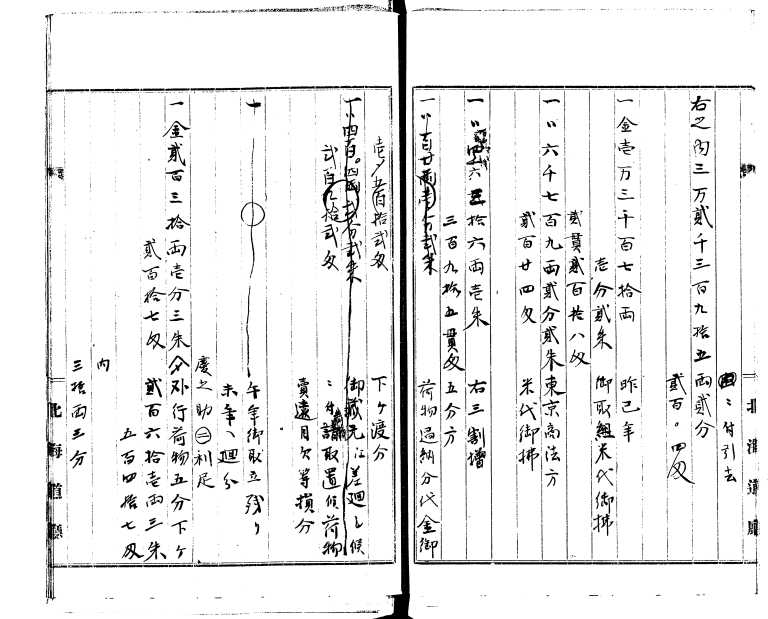 右之内三万弐千三百九拾五両弐分
弐百〇四匁
ニ付引去
一金壱万三千百七拾両
昨巳年
壱分弐朱
御取組米代御払
弐貫弐百拾八匁
一〃六千七百九両弐分弐朱
東京商法方
弐百廿四匁
米代御払
一〃
六
拾六両壱朱
右三割増
三百九拾五貫匁五分方
一〃百廿両壱分弐朱
荷物過納分代金御
壱〆五百拾弐匁
下ケ渡分
一〃四百〇四両弐分弐朱
御蔵元江差廻し候
弐百拾弐匁
ニ付請取置候荷物
売遠目欠等損分
午年御取立残り
未年へ廻分
慶之助㊁利足
一金弐百三拾両壱分三朱
外行荷物五分下ケ
弐百拾七匁
弐百六拾壱両三朱
五百四拾七匁
内
三拾両三分
北海道庁
北海道庁